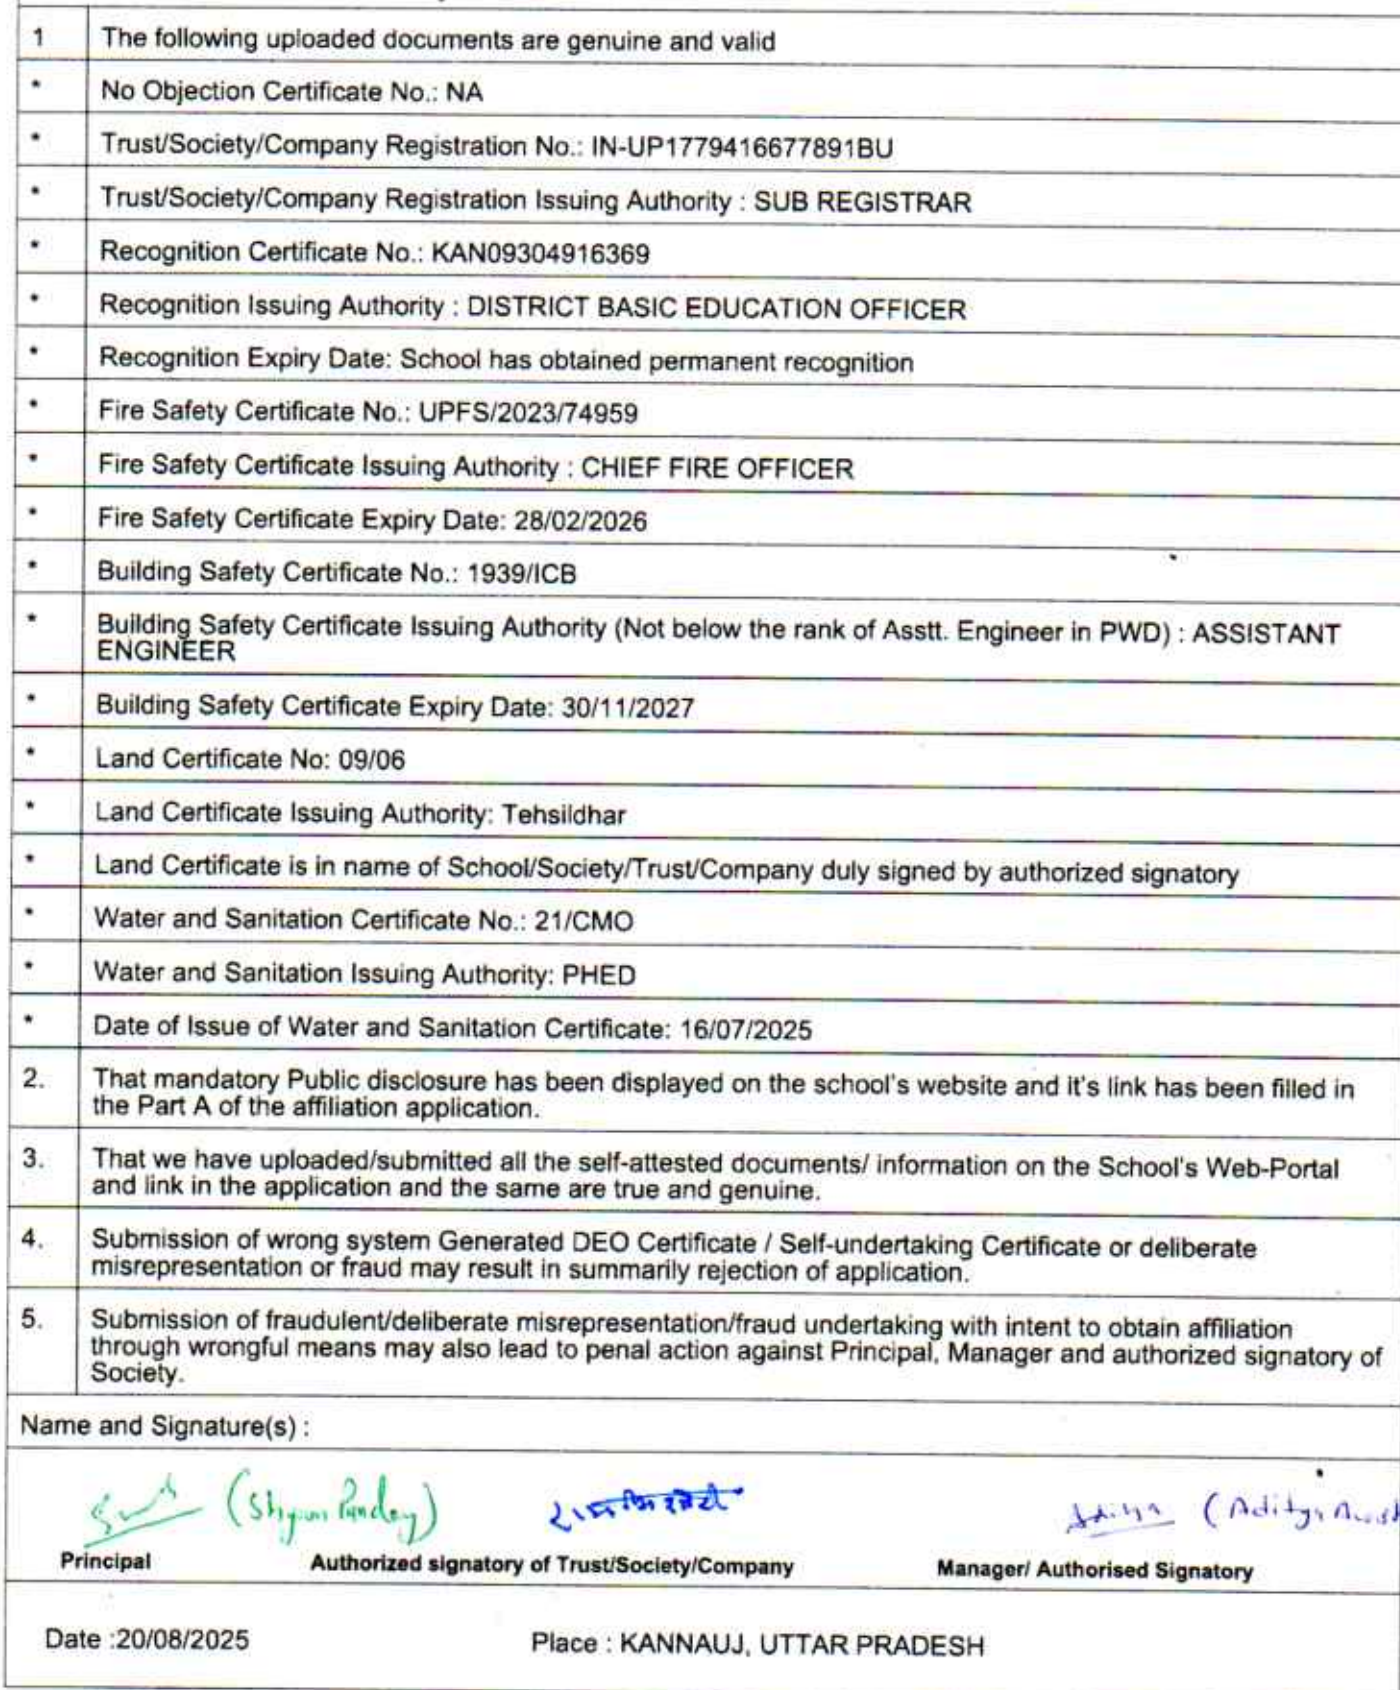 1 The following uploaded documents are genuine and valid
* No Objection Certificate No.: NA
* Trust/Society/Company Registration No.: IN-UP1779416677891BU
* Trust/Society/Company Registration Issuing Authority : SUB REGISTRAR
* Recognition Certificate No.: KAN09304916369
* Recognition Issuing Authority : DISTRICT BASIC EDUCATION OFFICER
* Recognition Expiry Date: School has obtained permanent recognition
* Fire Safety Certificate No.: UPFS/2023/74959
* Fire Safety Certificate Issuing Authority : CHIEF FIRE OFFICER
* Fire Safety Certificate Expiry Date: 28/02/2026
* Building Safety Certificate No.: 1939/ICB
* Building Safety Certificate Issuing Authority (Not below the rank of Asstt. Engineer in PWD) : ASSISTANT
ENGINEER
* Building Safety Certificate Expiry Date: 30/11/2027
* Land Certificate No: 09/06
* Land Certificate Issuing Authority: Tehsildhar
* Land Certificate is in name of School/Society/Trust/Company duly signed by authorized signatory
* Water and Sanitation Certificate No.: 21/CMO
* Water and Sanitation Issuing Authority: PHED
* Date of Issue of Water and Sanitation Certificate: 16/07/2025
2. That mandatory Public disclosure has been displayed on the school's website and it's link has been filled in
the Part A of the affiliation application.
3. That we have uploaded/submitted all the self-attested documents/ information on the School's Web-Portal
and link in the application and the same are true and genuine.
4. Submission of wrong system Generated DEO Certificate / Self-undertaking Certificate or deliberate
misrepresentation or fraud may result in summarily rejection of application.
5. Submission of fraudulent/deliberate misrepresentation/fraud undertaking with intent to obtain affiliation
through wrongful means may also lead to penal action against Principal, Manager and authorized signatory of
Society.
Name and Signature(s) :
(Shyam Pandey) (Aditya
Principal Authorized signatory of Trust/Society/Company Manager/ Authorised Signatory
Date :20/08/2025 Place : KANNAUJ, UTTAR PRADESH